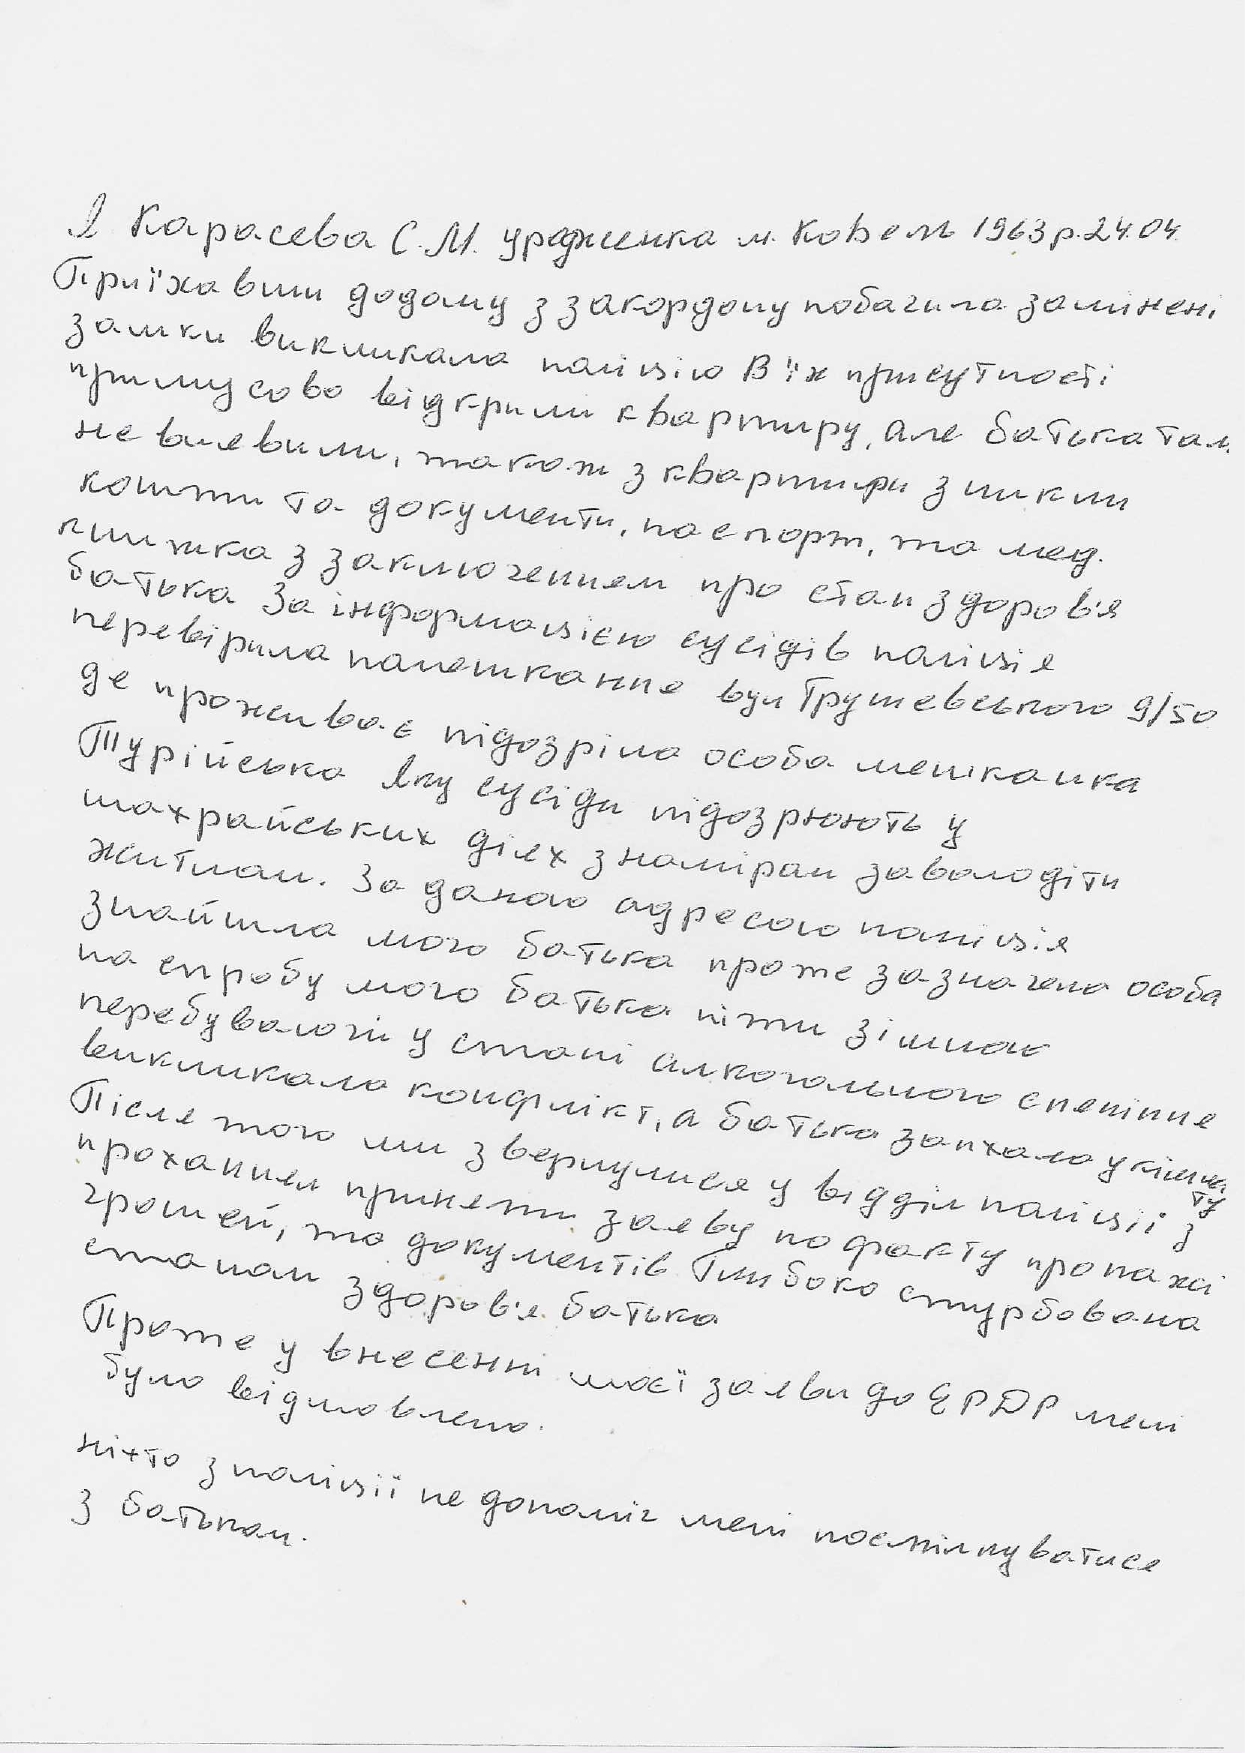 Я Карасева С.М. уродженка м. Ковель 1963р.24.04
Приїхавши додому з закордону побачила замінені
замки викликала поліцію В їх присутності
примусово відкрили квартиру, але батька там
не виявили, також з квартири зникли
кошти та документи, паспорт, та мед.
книжка з заключенням про стан здоров'я
батька За інформацією сусідів поліція
перевірила помешкання вул Грушевського 9/50
де проживає підозріла особа мешканка
Турійська яку сусіди підозрюють у
шахрайських діях з наміром заволодіти
житлом. За даною адресою поліція
знайшла мого батька проте зазначена особа
на спробу мого батька піти зі мною
перебуваючи у стані алкогольного спяніння
викликала конфлікт, а батька запхала у кімнату
Після того ми звернулися у відділ поліції з
проханням прийняти заяву по факту пропажі
грошей, та документів Глибоко стурбована
станом здоров'я батька
Проте у внесенні моєї заяви до ЄРДР мені
було відмовлено.
ніхто з поліції не допоміг мені поспілкуватися
з батьком.